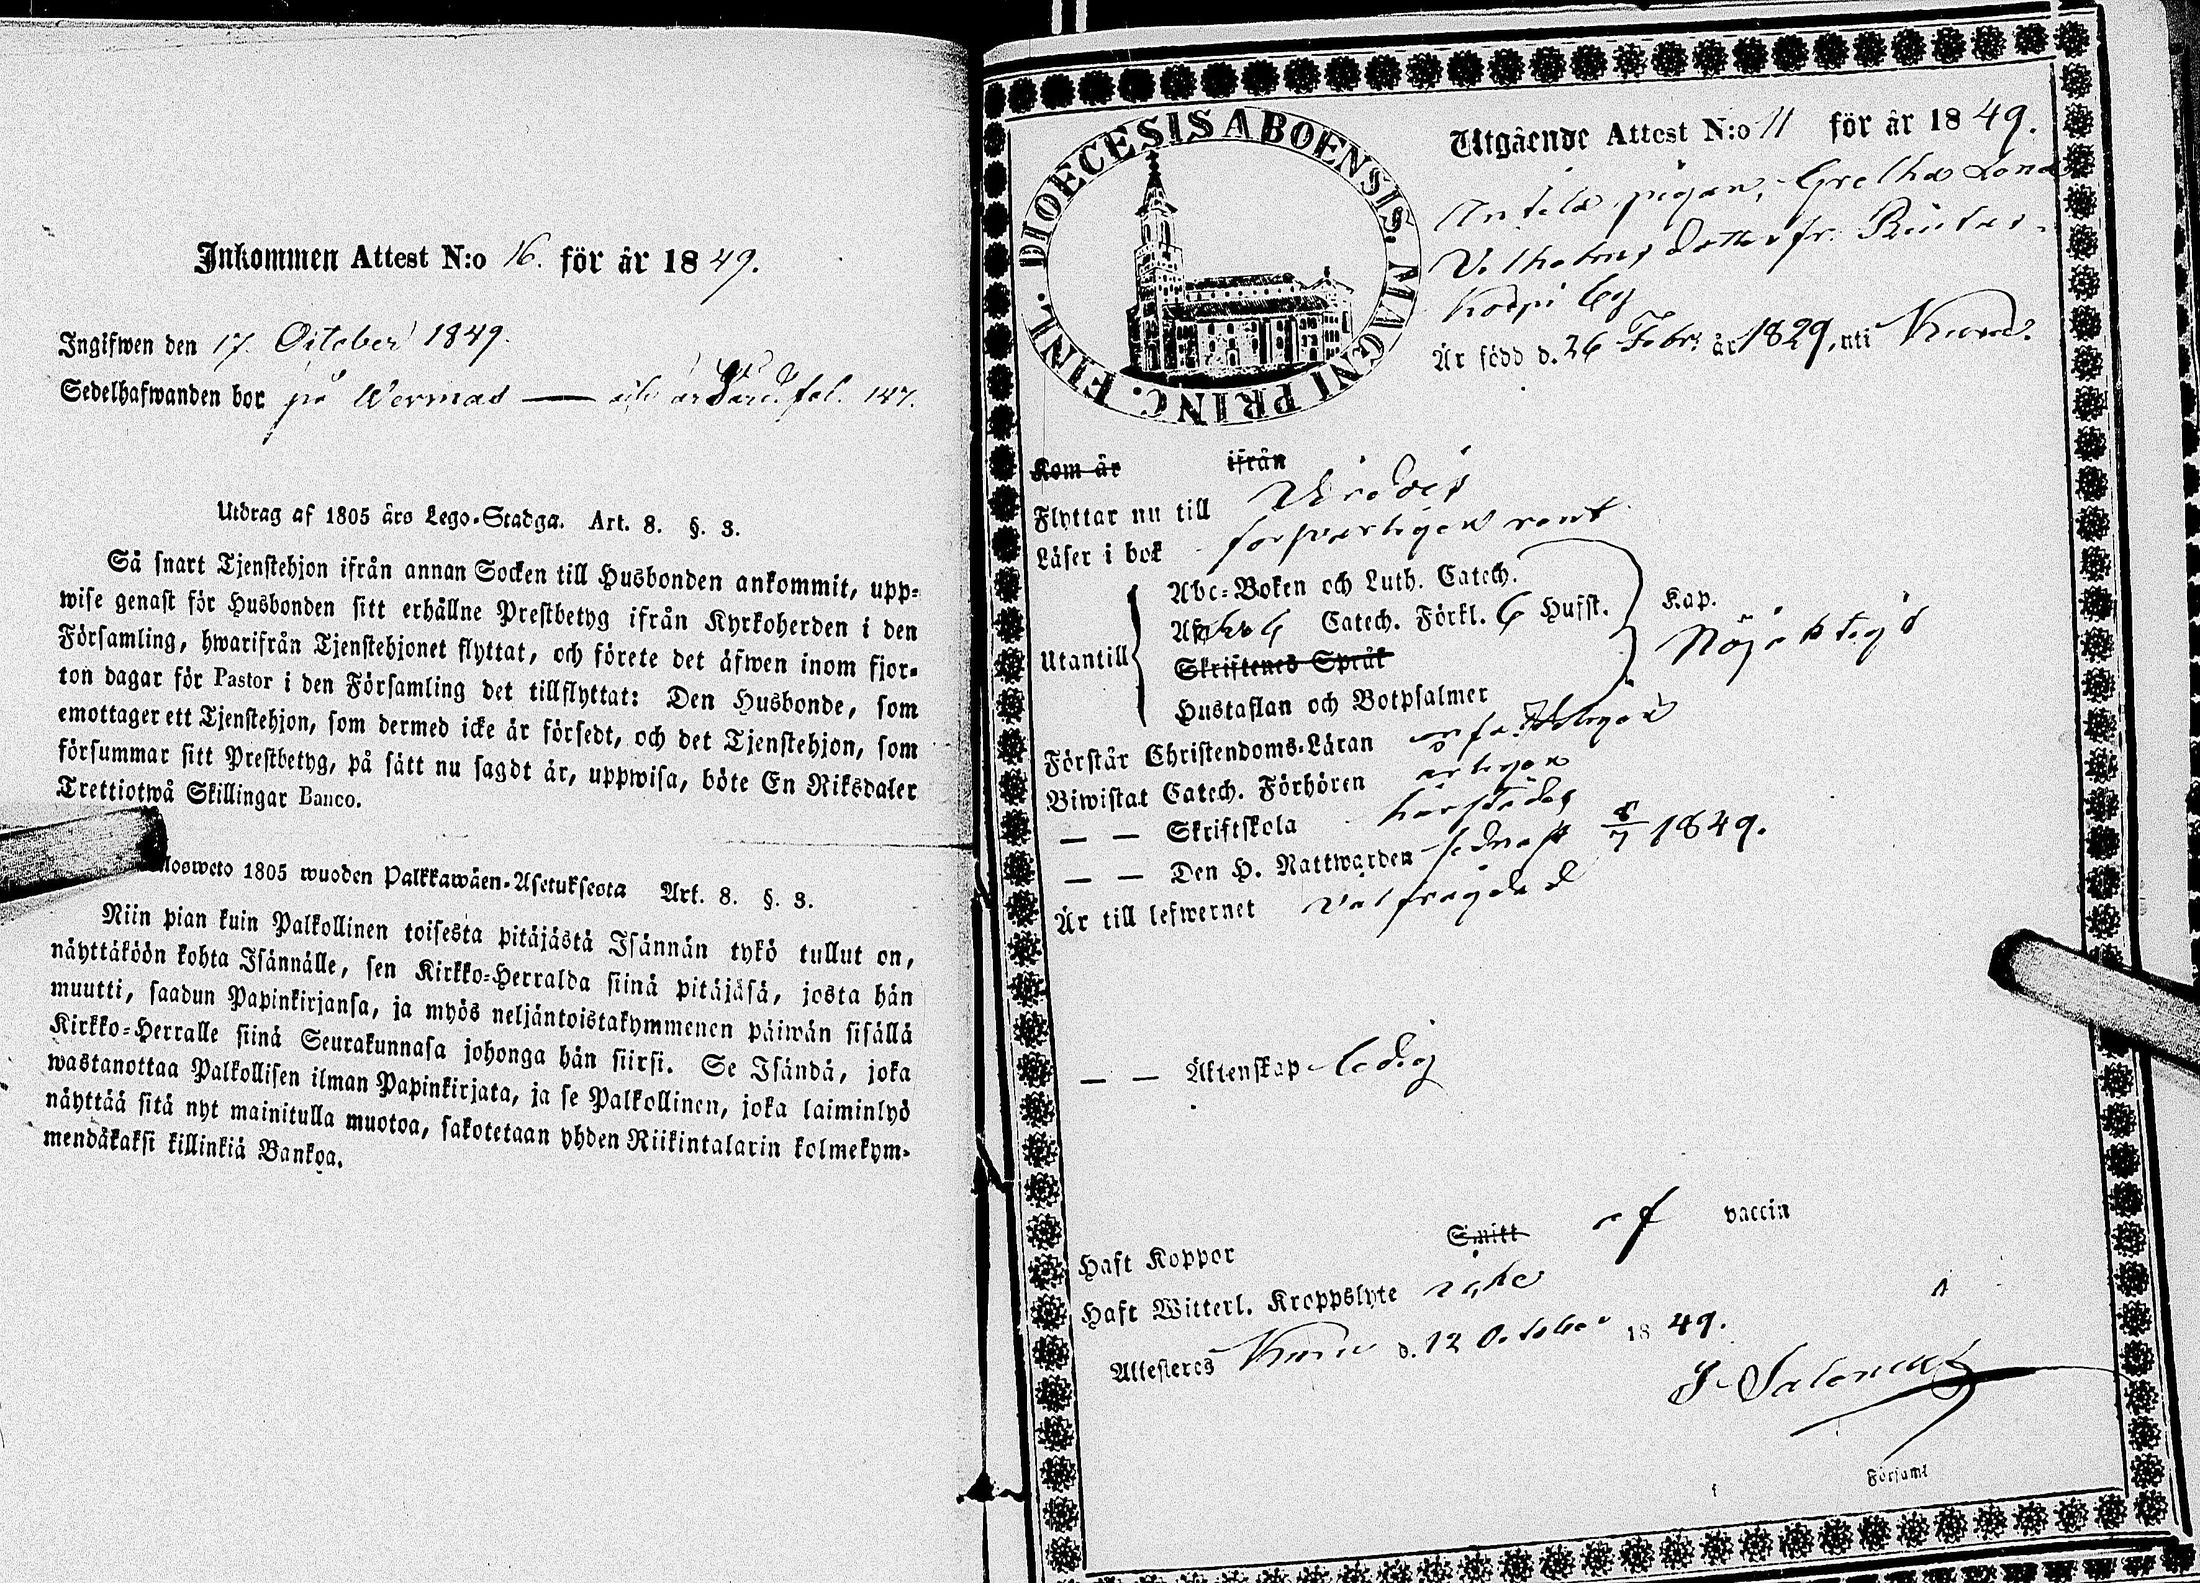 Inkommen Attest N:o 16. för år 1849.
Ingifwen den 17. October 1849.
Sedelhafwanden bor på Wermas — fol. 147.
Utdrag af 1805 års Lego-Stadga. Art. 8. §. 3.
Så snart Tjenstehjon ifrån annan Socken till Husbonden ankommit, upp-
wise genast för Husbonden sitt erhållne Prestbetyg ifrån Kyrkoherden i den
Församling, hwarifrån Tjenstehjonet flyttat, och förete det äfwen inom fjor-
ton dagar för Pastor i den Församling det tillflyttat: Den Husbonde, som
emottager ett Tjenstehjon, som dermed icke är försedt, och det Tjenstehjon, som
försummar sitt Prestbetyg, på sätt nu sagdt är, uppwisa, böte En Riksdaler
Trettiotwå Skillingar Banco.
1805 wuoden Palkkawäen-Asetuksesta Art. 8. §. 3.
Niin pian kuin Palkollinen toisesta pitäjästä Isännän tykö tullut on,
näyttäköön kohta Isännälle, sen Kirkko-Herralda siinä pitäjäsä, josta hän
muutti, saadun Papinkirjansa, ja myös neljäntoistakymmenen päiwän sisällä
Kirkko-Herralle siinä Seurakunnasa johonga hän siirsi. Se Isändä, joka
wastanottaa Palkollisen ilman Papinkirjata, ja se Palkollinen, joka laiminlyö
näyttää sitä nyt mainitulla muotoa, sakotetaan yhden Riikintalarin kolmekym-
mendäkaksi killinkiä Bankoa.
DIOECESIS ABOENSIS. MAGNI PRINC. FINL.
Utgående Attest N:o 11 för år 1849.
pigan, Gretha
dotter fr.
by
Är född d. 26 Febr. år 1829, uti
Kom år ifrån
Flyttar nu till
Läser i bok försvarligen rent
Utantill
Abc-Boken och Luth. Catech.
Catech. Förkl. Husst. Kap.
Skriftenes Språk
Nöjaktigt
Hustaflan och Botpsalmer
Förstår Christendoms-Läran
Biwistat Catech. Förhören årligen
— — Skriftskola härstädes
— — Den H. Nattwarden sednast 8/7 1849.
Är till lefwernet välfrägdad
— — Äktenskap ledig
Haft Koppor Smitt af vaccin
Haft Witterl. Kroppslyte icke
Attesteres d. 12 October 1849.
Församl